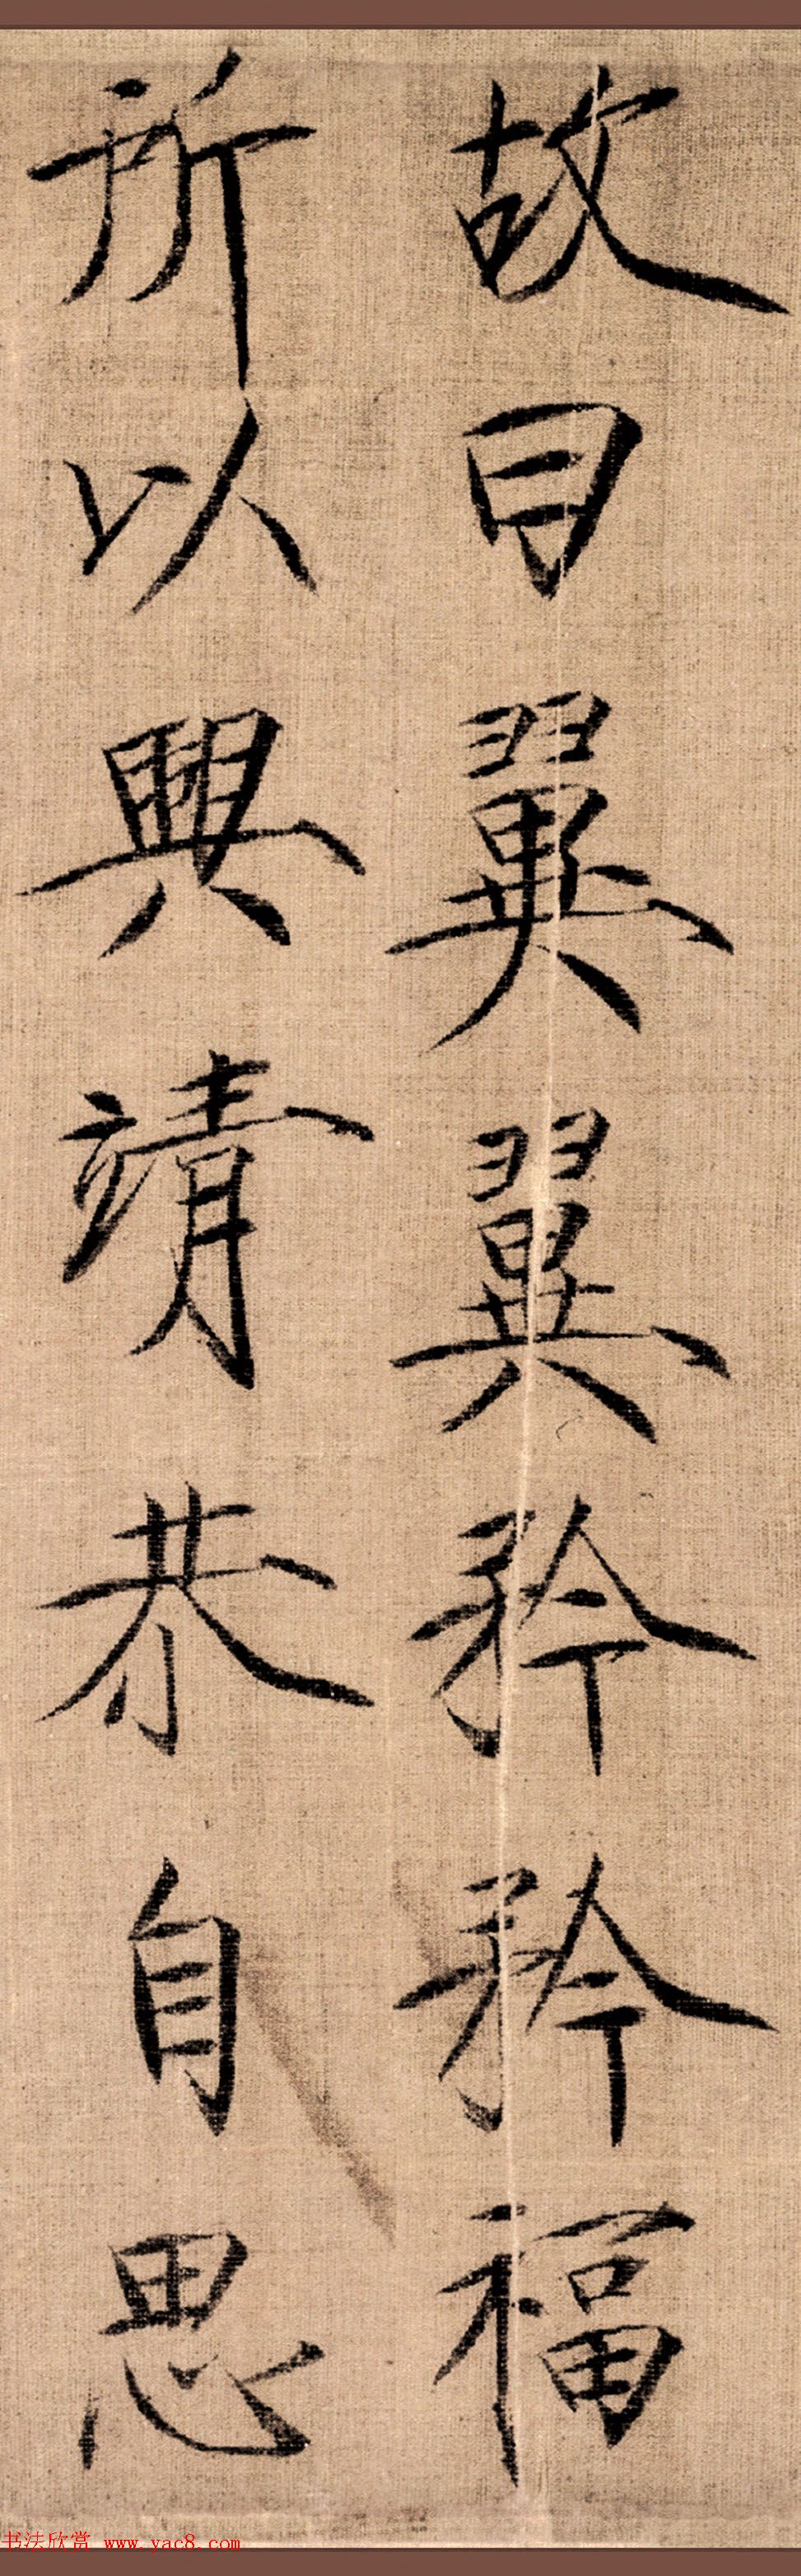 故曰翼翼矜矜福
所以興靖恭自思
书法欣赏 www.yac8.com